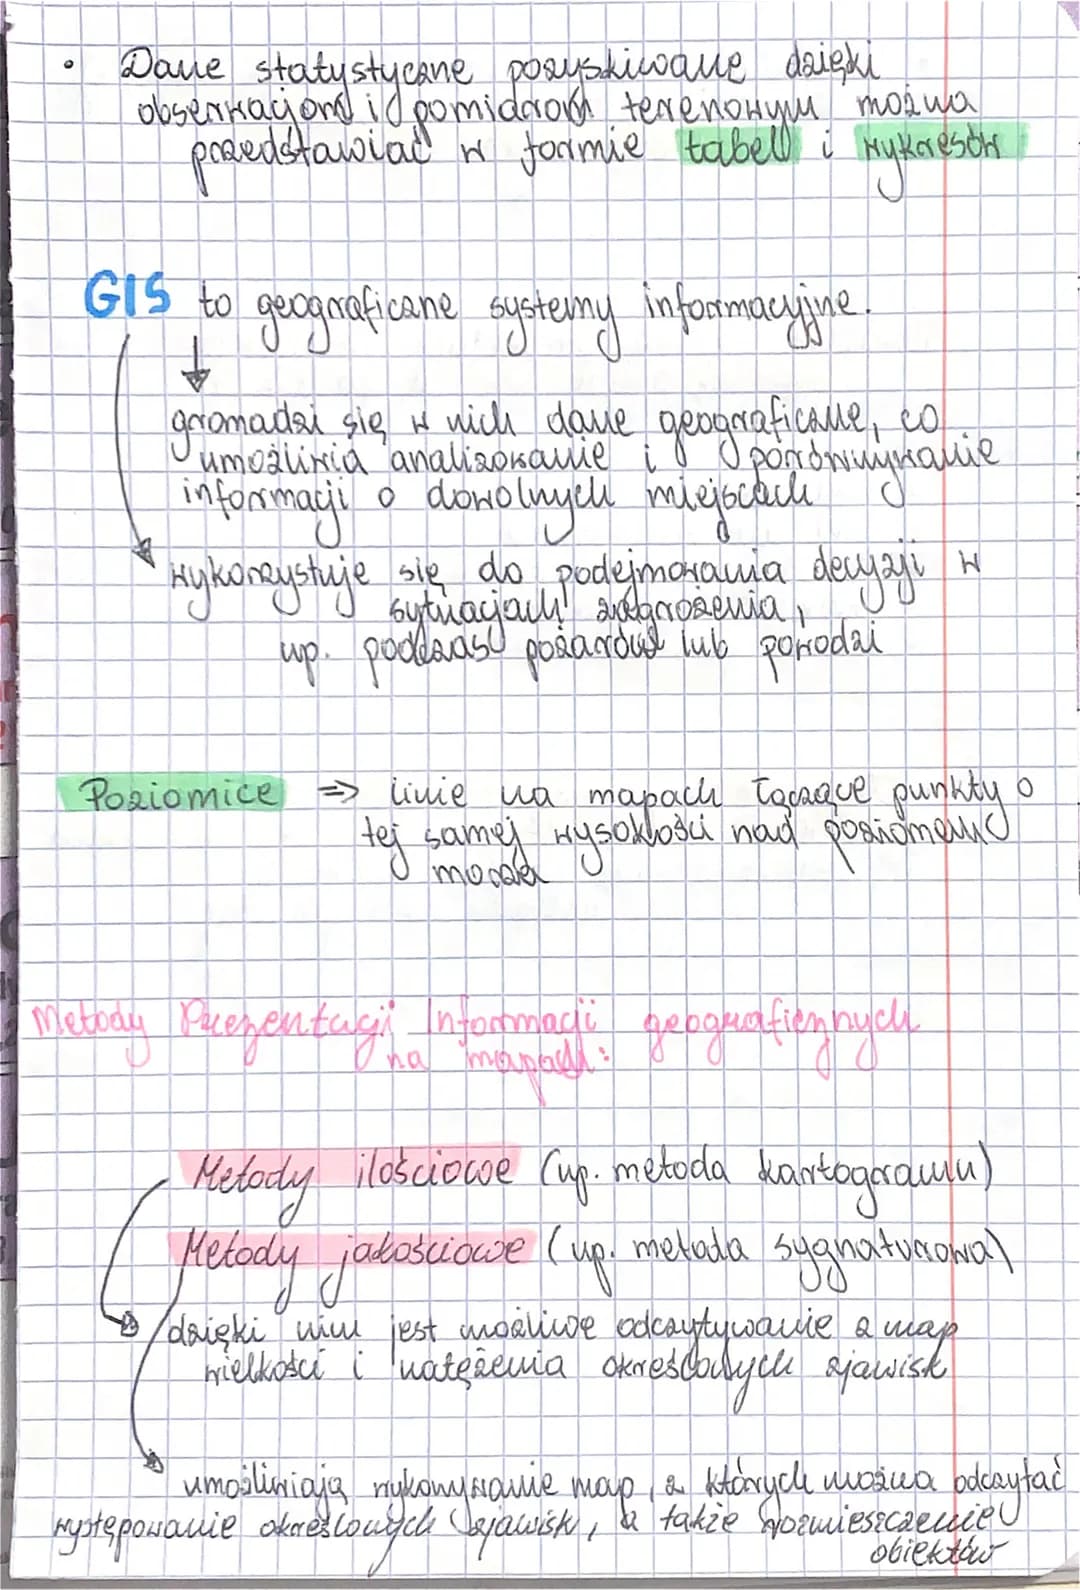 • Dane statystyczne pozyskiwane dzięki
obserwacjom i pomiarom terenowym można
przedstawiać w formie tabel i wykresów
GIS to geograficzne systemy informacyjne.
gromadzi się w nich dane geograficzne, co
umożliwia analizowanie i porównywanie
informacji o dowolnych miejscach
wykorzystuje się do podejmowania decyzji w
sytuacjach zagrożenia,
np. podczas pożarów lub powodzi
Poziomice => linie na mapach łączące punkty o
tej samej wysokości nad poziomem
morza
Metody Prezentacji Informacji geograficznych
na mapach:
Metody ilościowe (np. metoda kartogramu)
Metody jakościowe (np. metoda sygnaturowa)
dzięki nim jest możliwe odczytywanie z map
wielkości i natężenia określonych zjawisk
umożliwiają wykonywanie map, z których można odczytać
występowanie określonych zjawisk, a także rozmieszczenie
obiektów